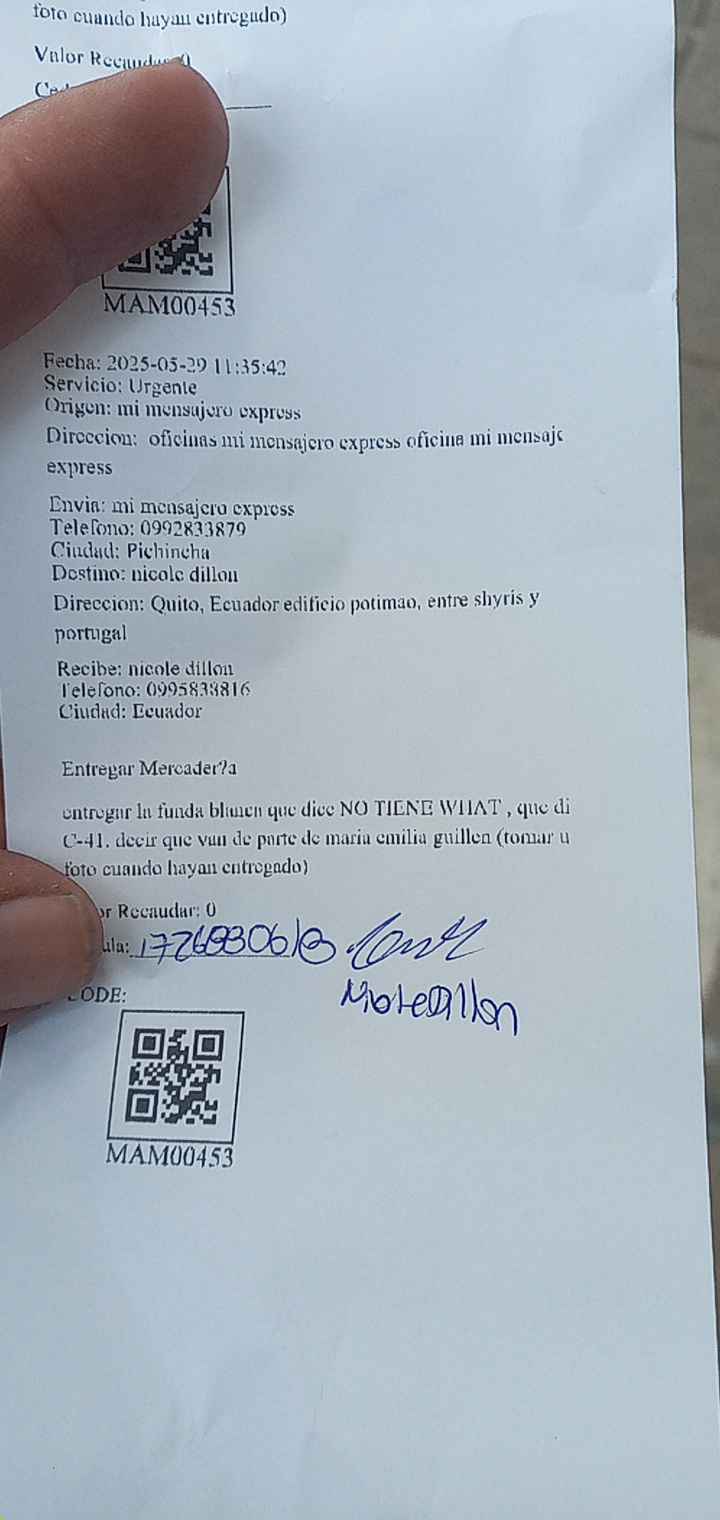 foto cuando hayan entregado)
Valor Recaudar: 0
MAM00453
Fecha: 2025-05-29 11:35:42
Servicio: Urgente
Origen: mi mensajero express
Direccion: oficinas mi mensajero express oficina mi mensaje
express
Envia: mi mensajero express
Telefono: 0992833879
Ciudad: Pichincha
Destino: nicole dillon
Direccion: Quito, Ecuador edificio potimao, entre shyris y
portugal
Recibe: nicole dillon
Telefono: 0995838816
Ciudad: Ecuador
Entregar Mercader?a
entregar la funda blanca que dice NO TIENE WHAT , que di
C-41. decir que van de parte de maria emilia guillen (tomar u
foto cuando hayan entregado)
or Recaudar: 0
ula:
CODE:
Nicole Dillon
MAM00453